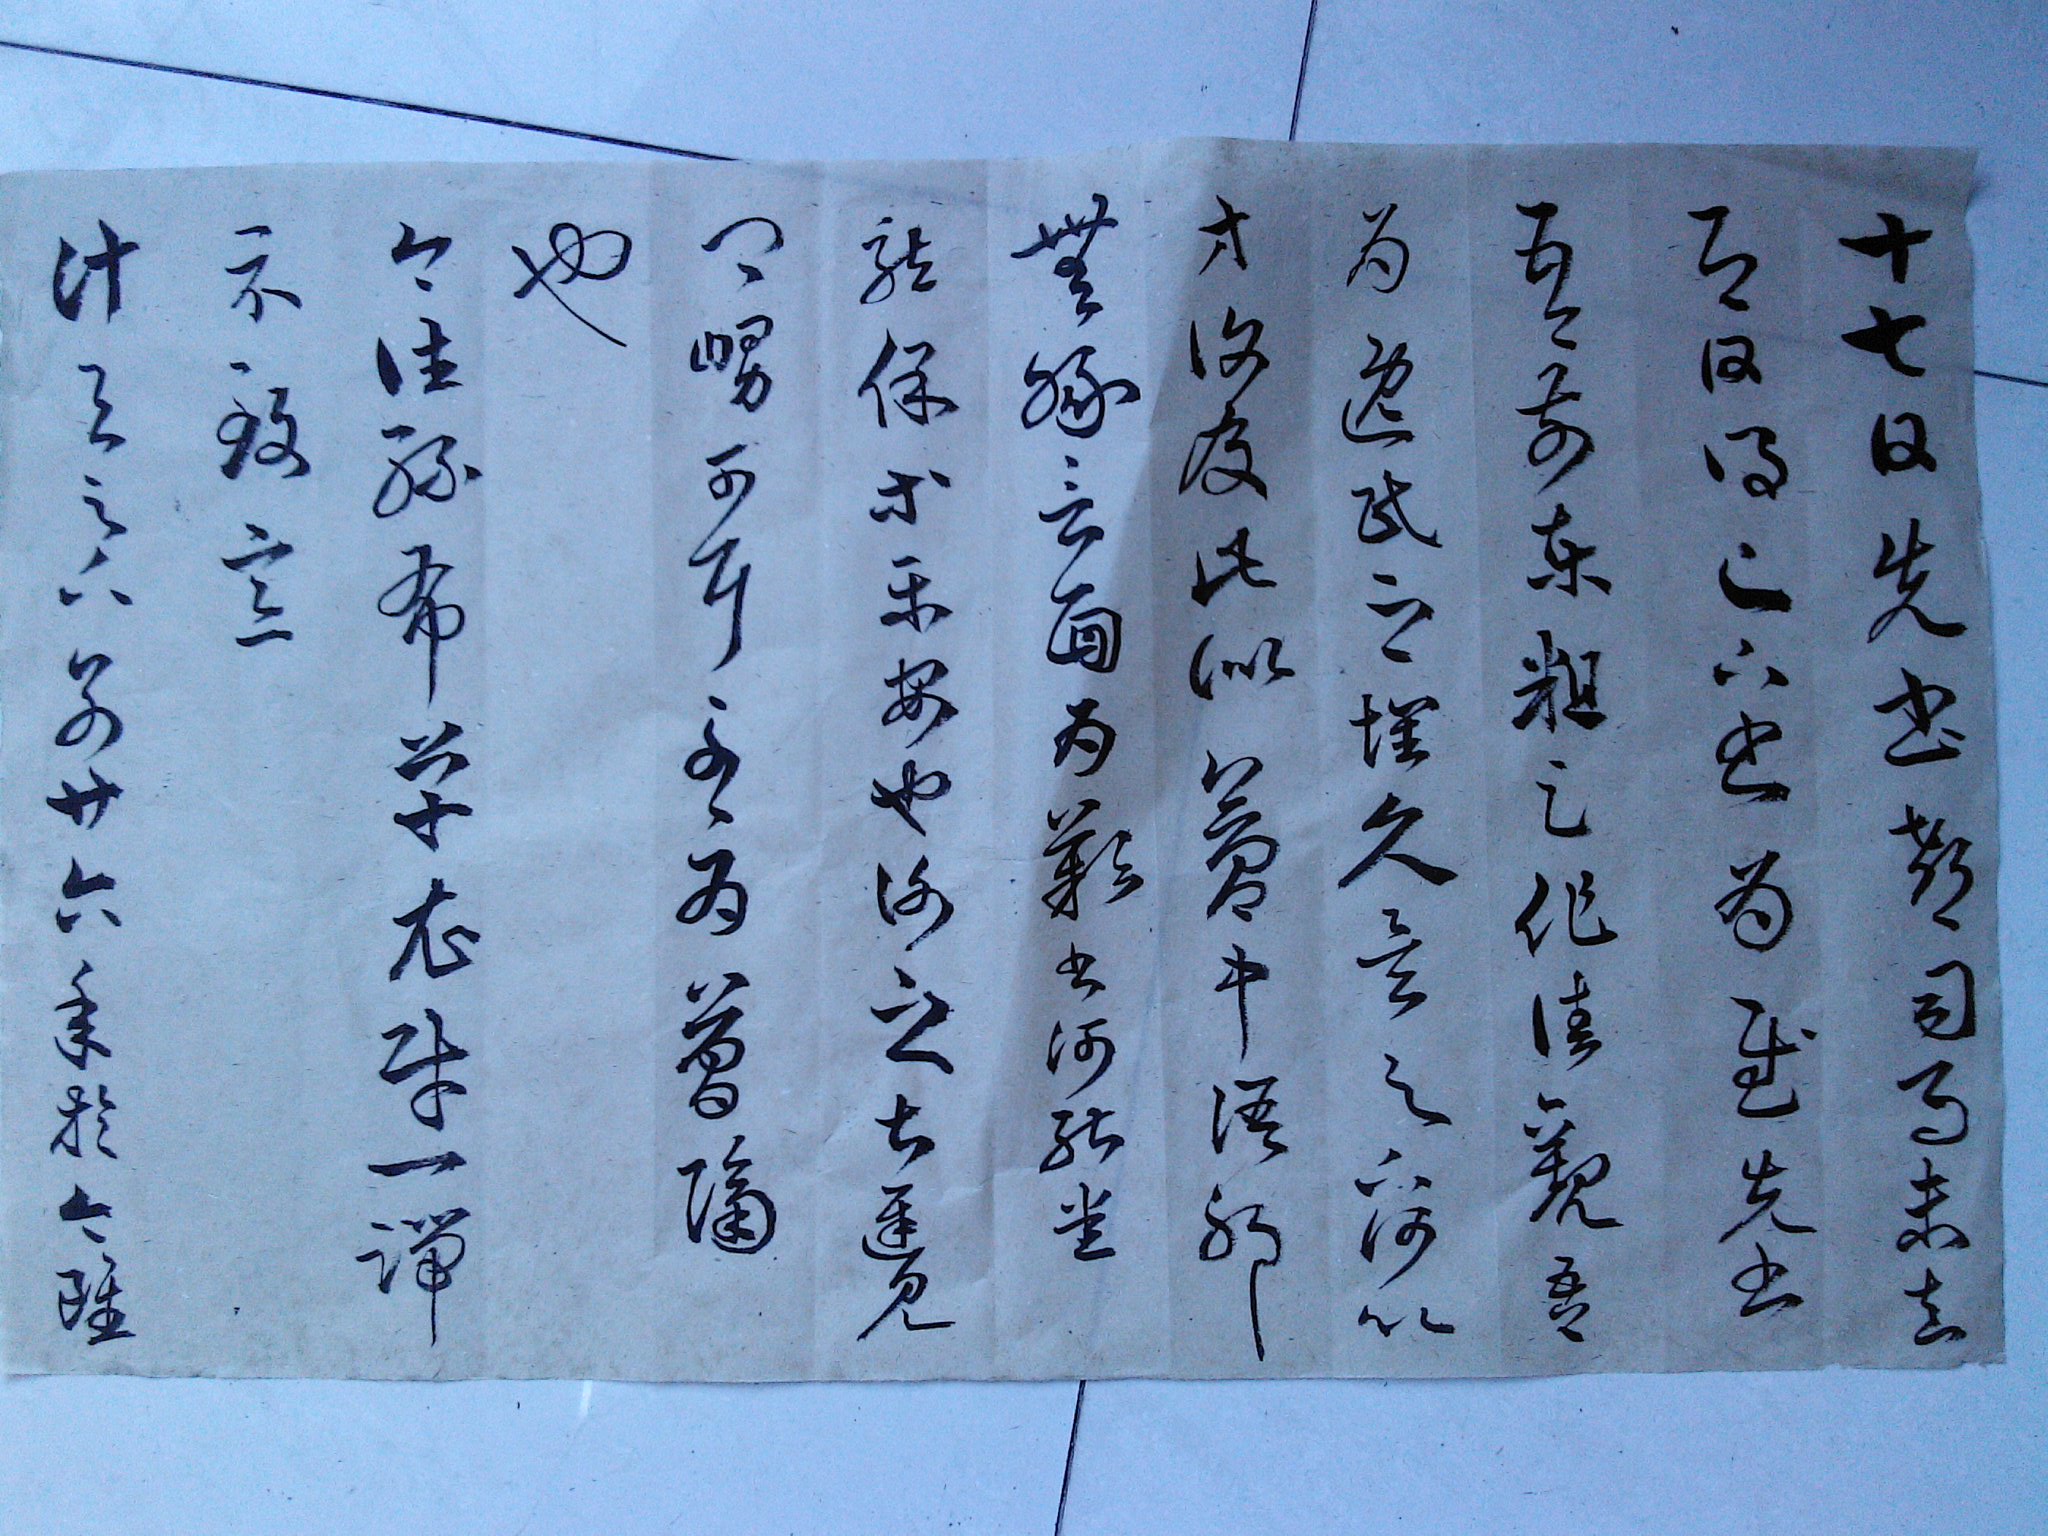 十七日先書郗司馬未去
即日得足下書為慰先書
吾前東粗足作佳觀吾
為逸民之懷久矣足下何以
方復及此似夢中語耶
無緣言面為歎書何能悉
龍保等平安也謝之甚遲見
卿舅可耳至為簡隔
也
今往絲布單衣財一端
示致意
計與足下別廿六年於今雖